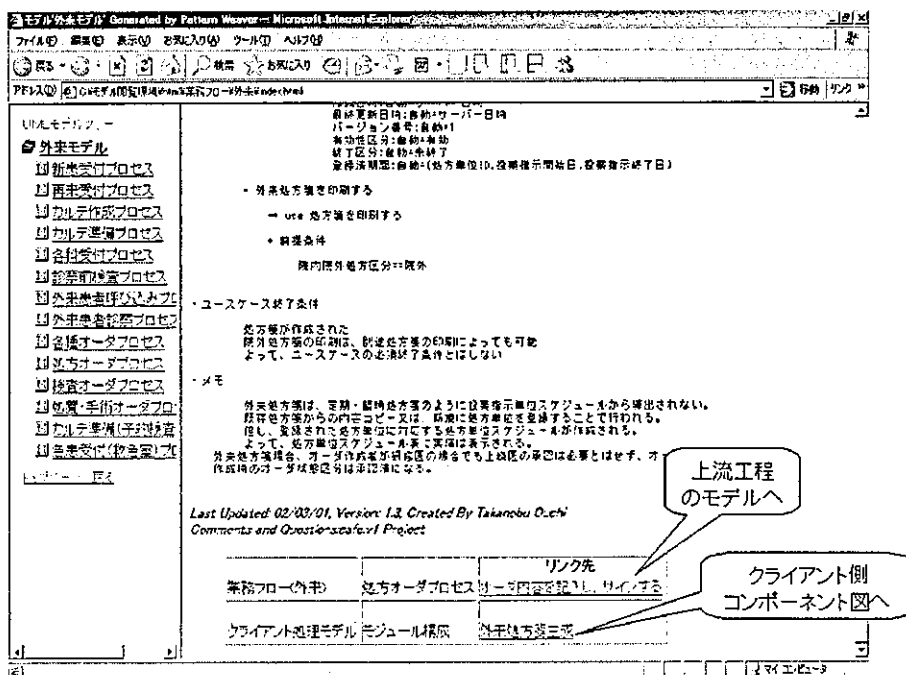 モデル'外来モデル' Generated by Pattern Weaver - Microsoft Internet Explorer
ファイル(F) 編集(E) 表示(V) お気に入り(A) ツール(T) ヘルプ(H)
戻る 検索 お気に入り
アドレス(D) 移動 リンク
UMLモデルツリー
外来モデル
新患受付プロセス
再来受付プロセス
カルテ作成プロセス
カルテ準備プロセス
各科受付プロセス
診察前検査プロセス
外来患者呼び込みプロ
外来患者診察プロセス
各種オーダプロセス
処方オーダプロセス
検査オーダプロセス
処置・手術オーダプロ
カルテ準備(予約検査
急患受付(救急室)プロ
最終更新日時:自動=サーバー日時
バージョン番号:自動=1
有効性区分:自動=有効
終了区分:自動=未終了
登録済期間:自動=(処方単位ID,投薬指示開始日,投薬指示終了日)
・ 外来処方箋を印刷する
→ use 処方箋を印刷する
・ 前提条件
院内院外処方区分==院外
・ユースケース終了条件
処方箋が作成された
院外処方箋の印刷は、別途処方箋の印刷によっても可能
よって、ユースケースの必須終了条件とはしない
・メモ
外来処方箋は、定期・臨時処方箋のように投薬指示単位スケジュールから導出されない。
既存処方箋からの内容コピー又は、新規に処方単位を登録することで行われる。
但し、登録された処方単位に対応する処方単位スケジュールが作成される。
よって、処方単位スケジュール表に実績は表示される。
外来処方箋場合、オーダ作成者が研修医の場合でも上級医の承認は必要とはせず、オー
作成時のオーダ状態区分は承認済になる。
上流工程
のモデルへ
Last Updated: 02/03/01, Version: 1.3, Created By Takanobu
Comments and Questions: Project
リンク先
業務フロー(外来) 処方オーダプロセス オーダ内容を記入し、サインする
クライアント側
コンポーネント図へ
クライアント処理モデル モジュール構成 外来処方箋生成
マイ コンピュータ